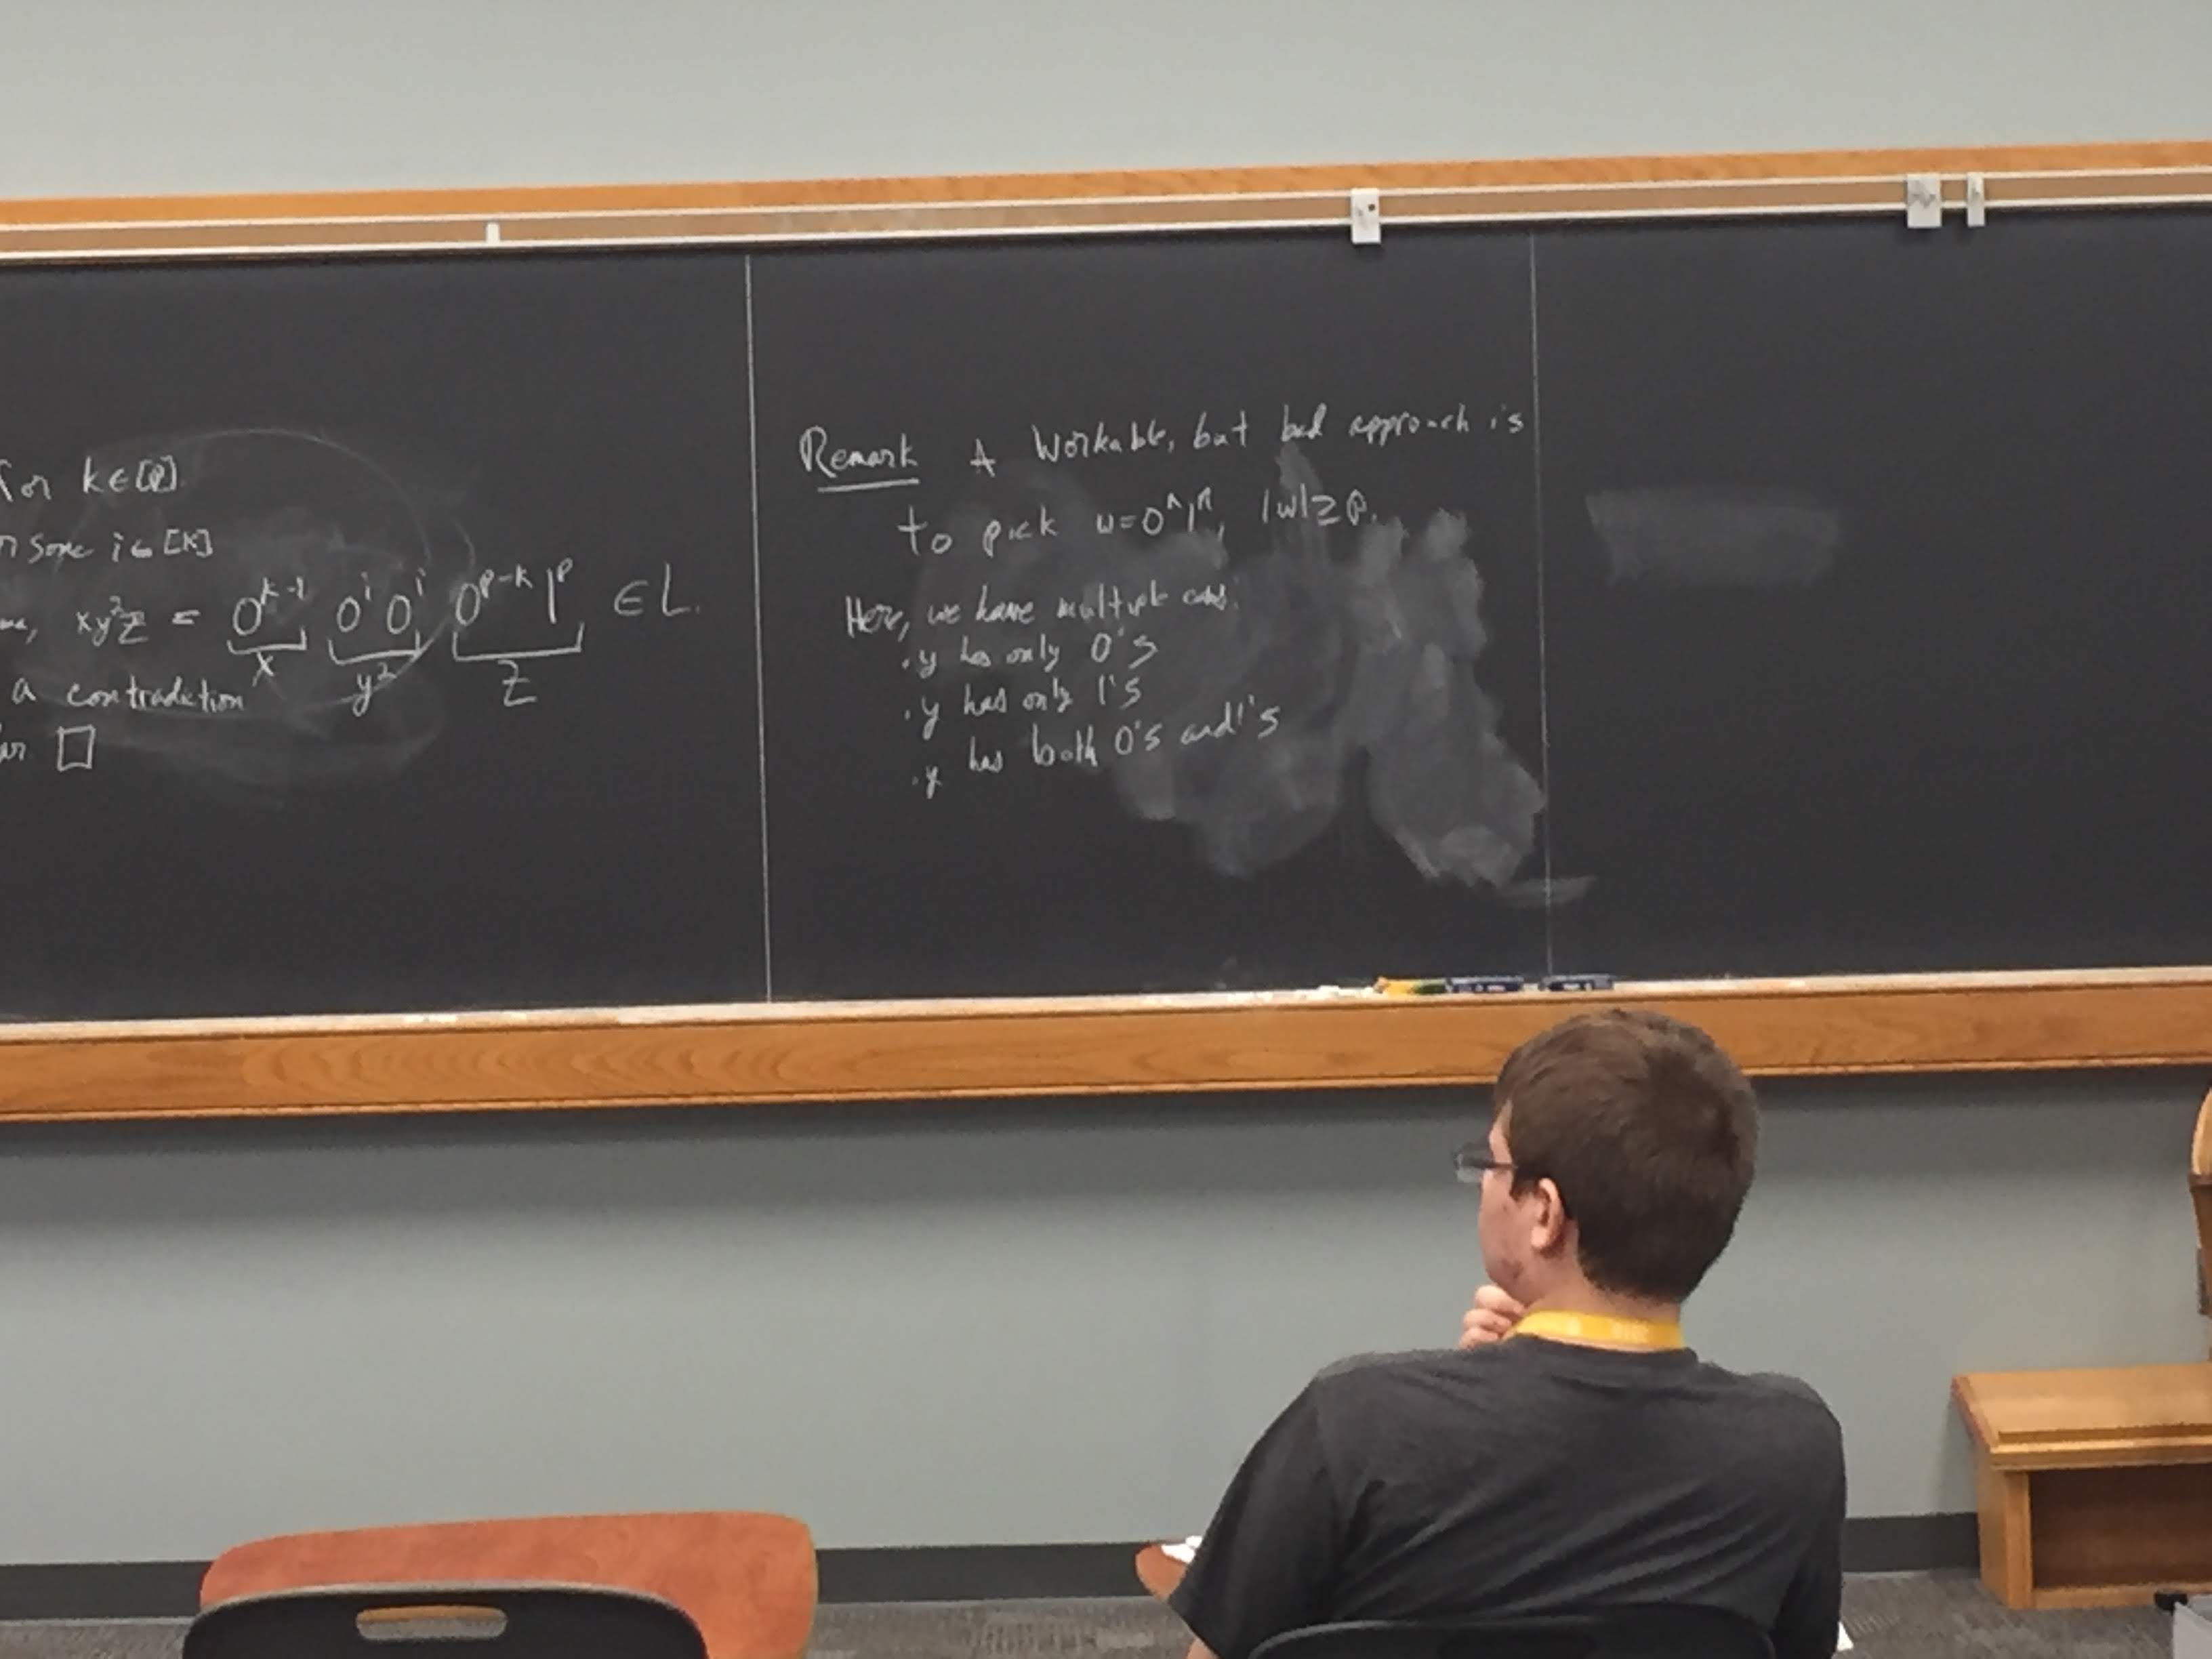 for k∈[p].
some i∈[k]
xy²z = 0^{k-1} 0^i 0^i 0^{p-k} 1^p ∈ L.
x y² z
a contradiction
□
Remark A Workable, but bad approach is
to pick w=0^n1^n, |w|≥p.
Here, we have multiple cases:
.y has only 0's
.y has only 1's
.y has both 0's and 1's